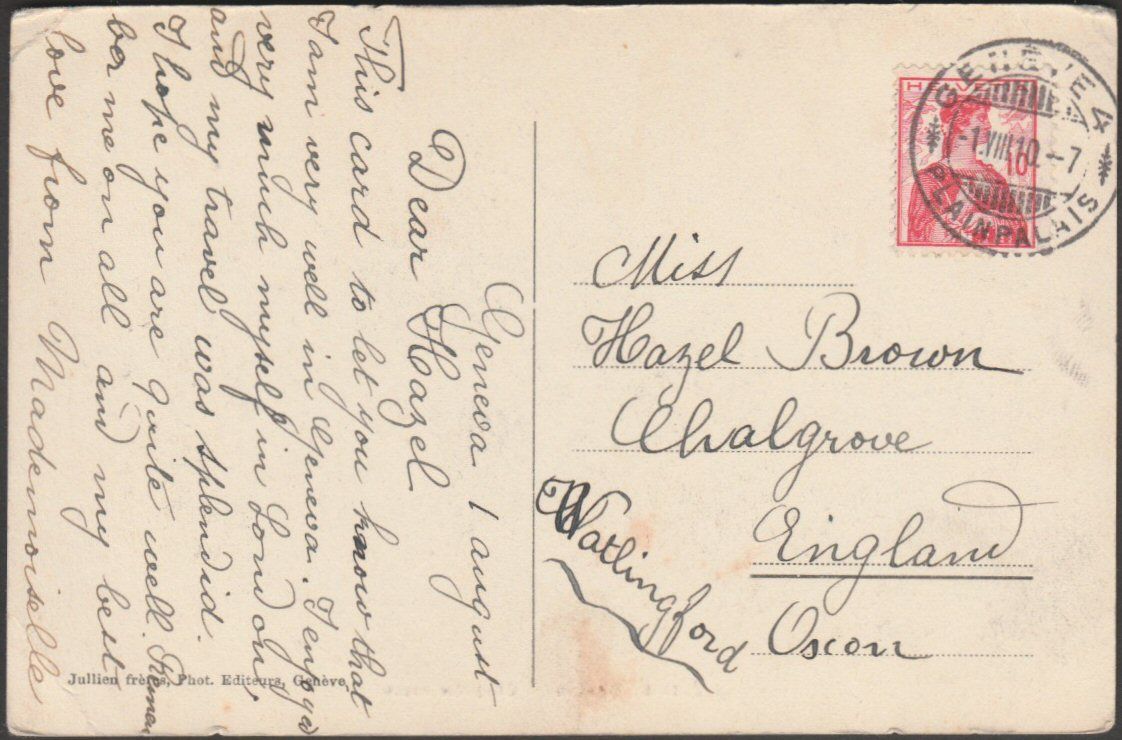 Geneva 1 august
Dear Hazel
This card to let you know that
I am very well in Geneva. I enjoyed
very much myself in London,
and my travel was splendid.
I hope you are quite well. Remem
ber me on all and my best
love from Mademoiselle
Jullien frères, Phot. Editeurs, Genève.
HELVETIA
10
GENÈVE 4
-1.VIII.10.-7
PLAINPALAIS
Miss
Hazel Brown
Chalgrove
Watlingford
England
Oxon